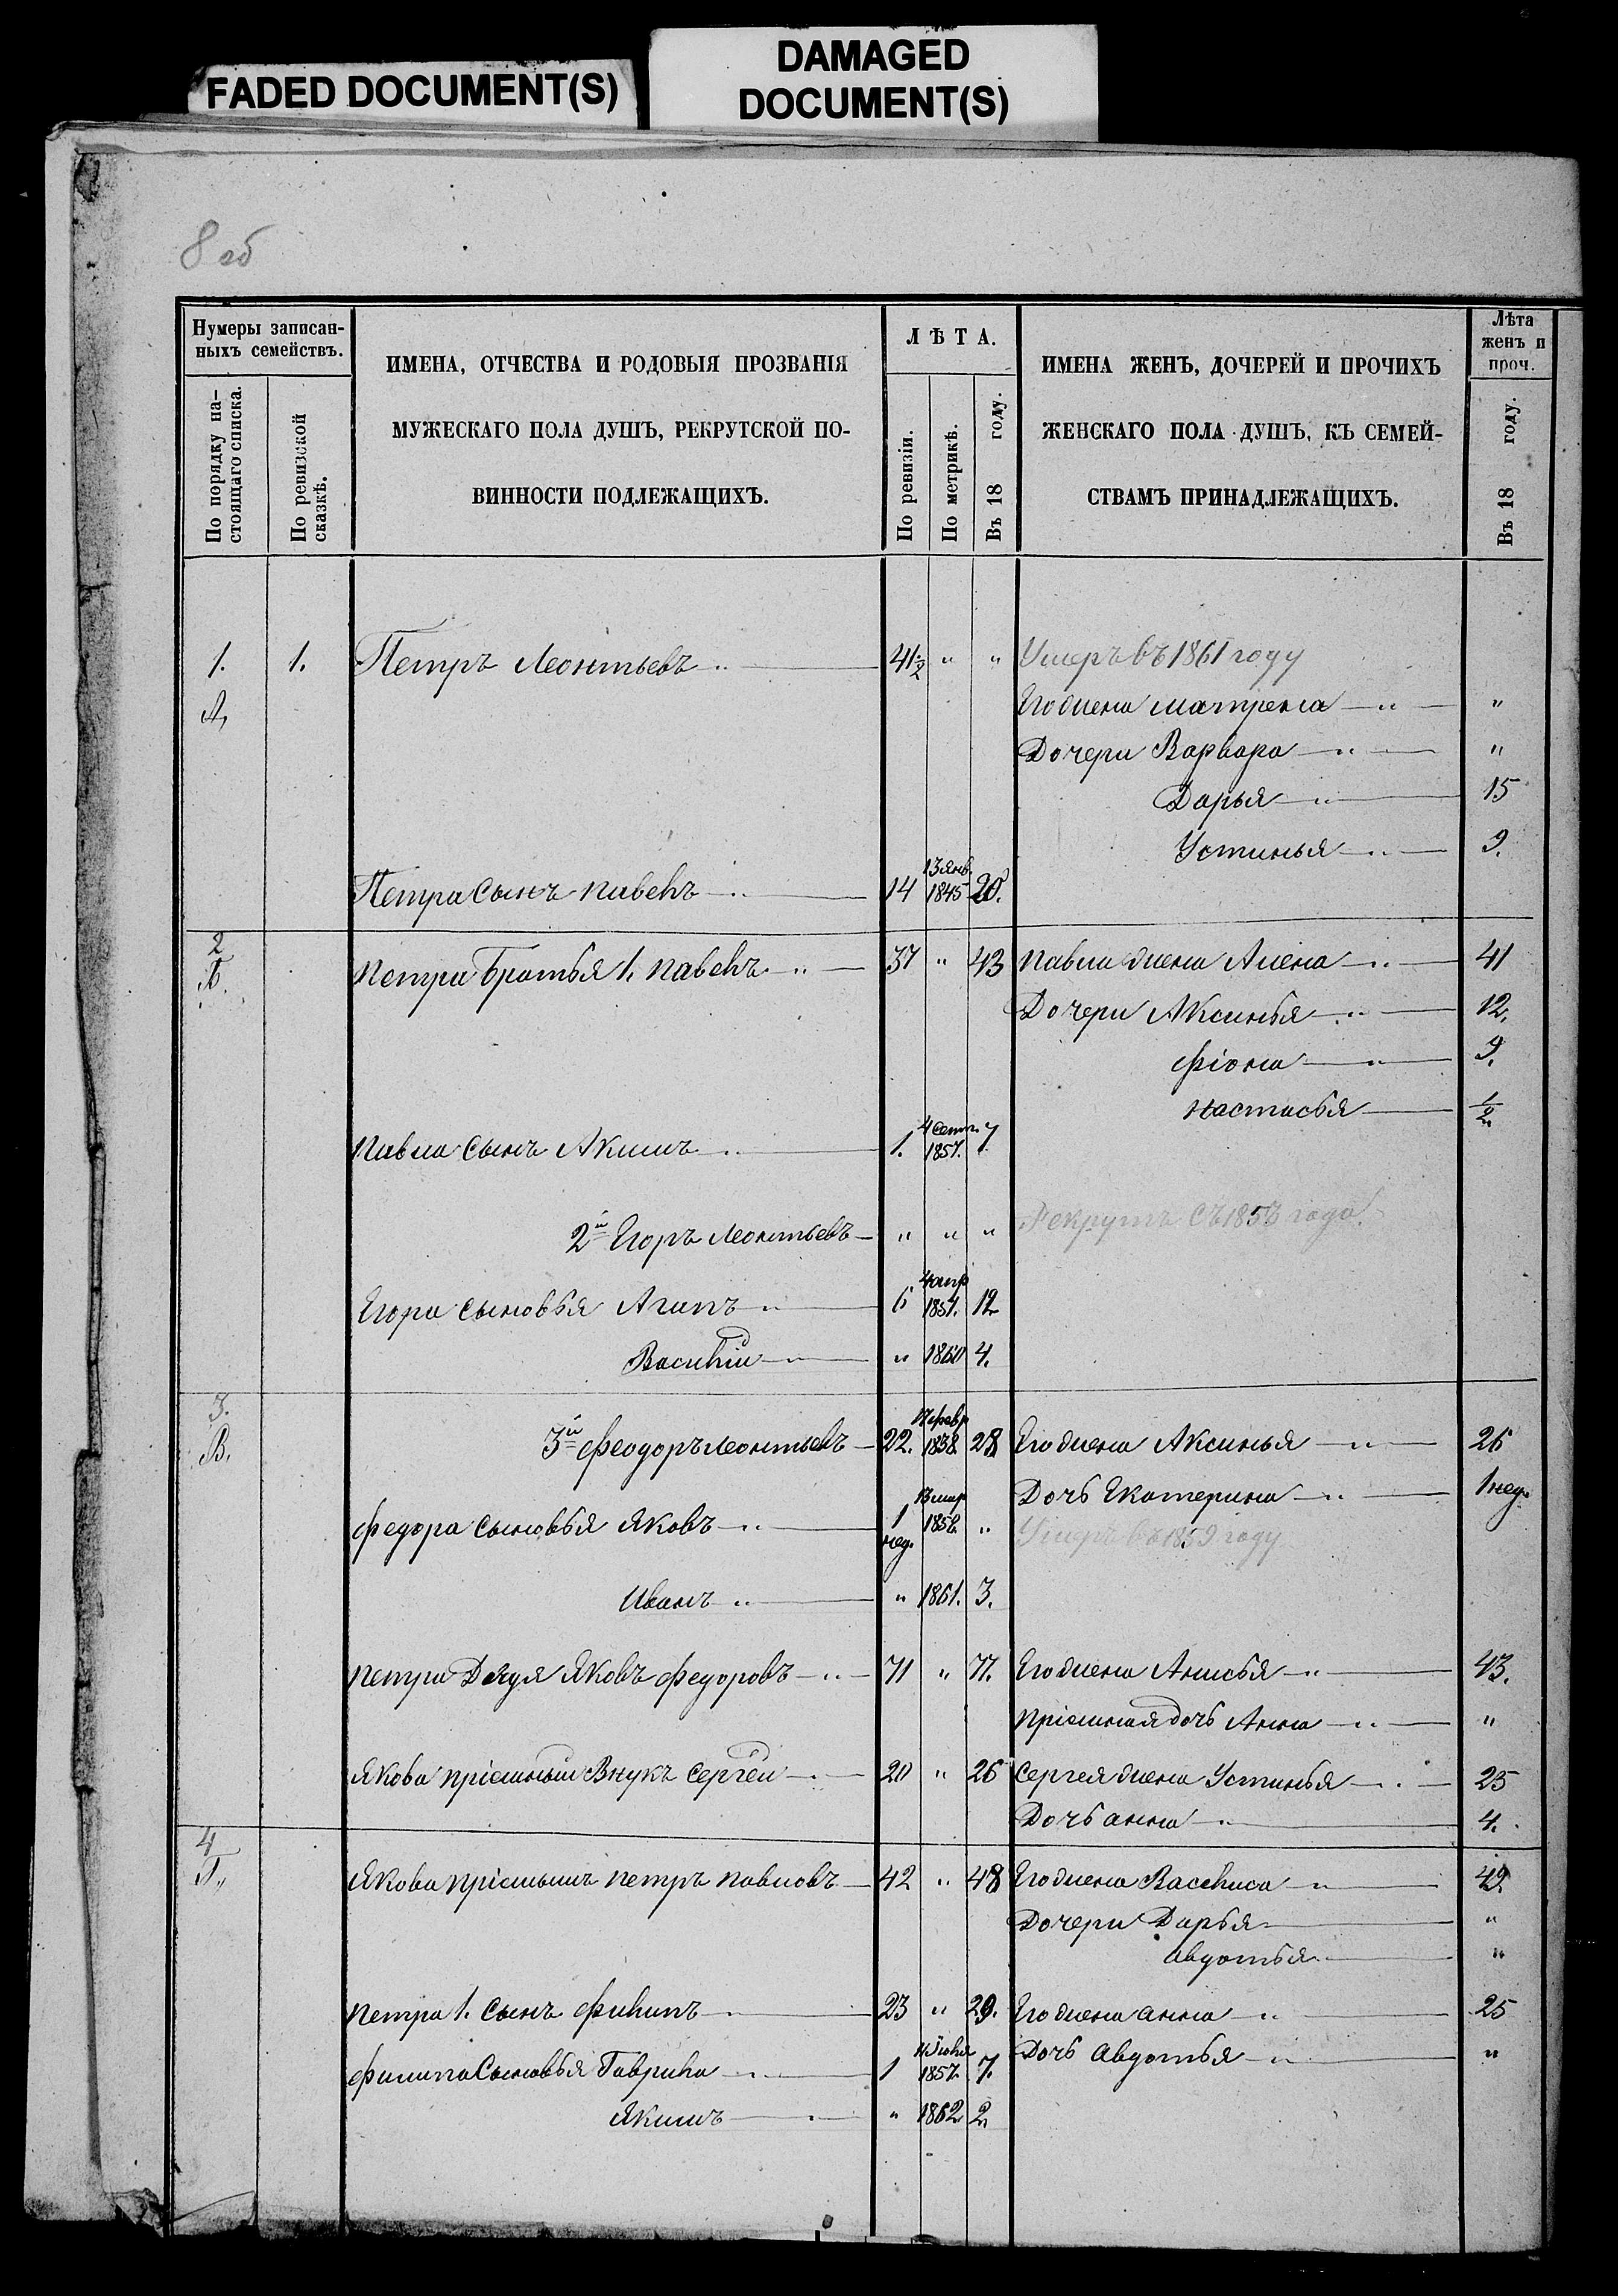 FADED DOCUMENT(S)
DAMAGED
DOCUMENT(S)
8 об
Нумеры записан-
ныхъ семействъ.
По порядку на-
стоящаго списка.
По ревизской
сказкѣ.
ИМЕНА, ОТЧЕСТВА И РОДОВЫЯ ПРОЗВАНІЯ
МУЖЕСКАГО ПОЛА ДУШЪ, РЕКРУТСКОЙ ПО-
ВИННОСТИ ПОДЛЕЖАЩИХЪ.
ЛѢТА.
По ревизіи.
По метрикѣ.
Въ 18 году.
ИМЕНА ЖЕНЪ, ДОЧЕРЕЙ И ПРОЧИХЪ
ЖЕНСКАГО ПОЛА ДУШЪ, КЪ СЕМЕЙ-
СТВАМЪ ПРИНАДЛЕЖАЩИХЪ.
Лѣта
женъ и
проч.
Въ 18 году.
1. 1. Петръ Леонтьевъ 41 1/2 " " Умеръ въ 1861 году
А, Его жена Матрена "
Дочери Варвара "
Дарья 15
Устинья 9.
Петра Сынъ Павелъ 14 13 Янв. 1845 20.
2
Б. Петра братья 1. Павелъ 37 " 43 Павла жена Алена 41
Дочери Аксинья 12.
Фіона 9.
Настасья 1/2
Павла Сынъ Акимъ 1. 4 Сент. 1857. 7
2й Егоръ Леонтьевъ " " " Рекрутъ съ 1853 года.
Егора Сыновья Агапъ 6 1854. 12
Василій " 1860 4.
3.
В. 3й Феодоръ Леонтьевъ 22. февр 1838 28 Его жена Аксинья 26
Дочь Екатерина 1 нед.
Федора Сыновья Яковъ 1 нед. 13 мар 1858. " Умеръ въ 1859 году
Иванъ " 1861. 3.
Петра Дядя Яковъ Федоровъ 71 " 77. Его жена Анисья 43.
Пріемная дочь Анна "
Якова пріемный Внукъ Сергей 20 " 26 Сергея жена Устинья 25
Дочь Анна 4.
4
Г,, Якова пріемышъ Петръ Павловъ 42 " 48 Его жена Васелиса 49
Дочери Дарья "
Авдотья "
Петра 1. Сынъ Филипъ 23 " 29. Его жена Анна 25
Дочь Авдотья "
Филипа Сыновья Гаврила 1 Іюля 1857 7.
Якимъ " 1862 2.